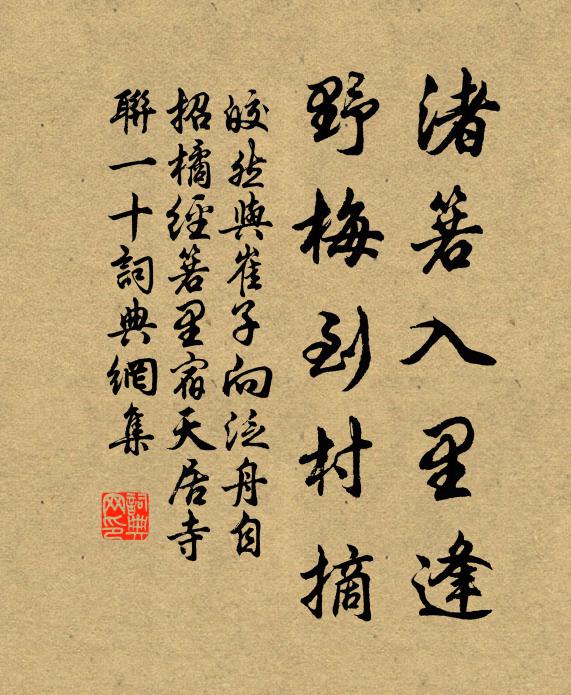 渚箬入里逢
野梅到村摘
皎然與崔子向泛舟自
招橘經箬里宿天居寺
聯一十詞典網集
詞典
网印